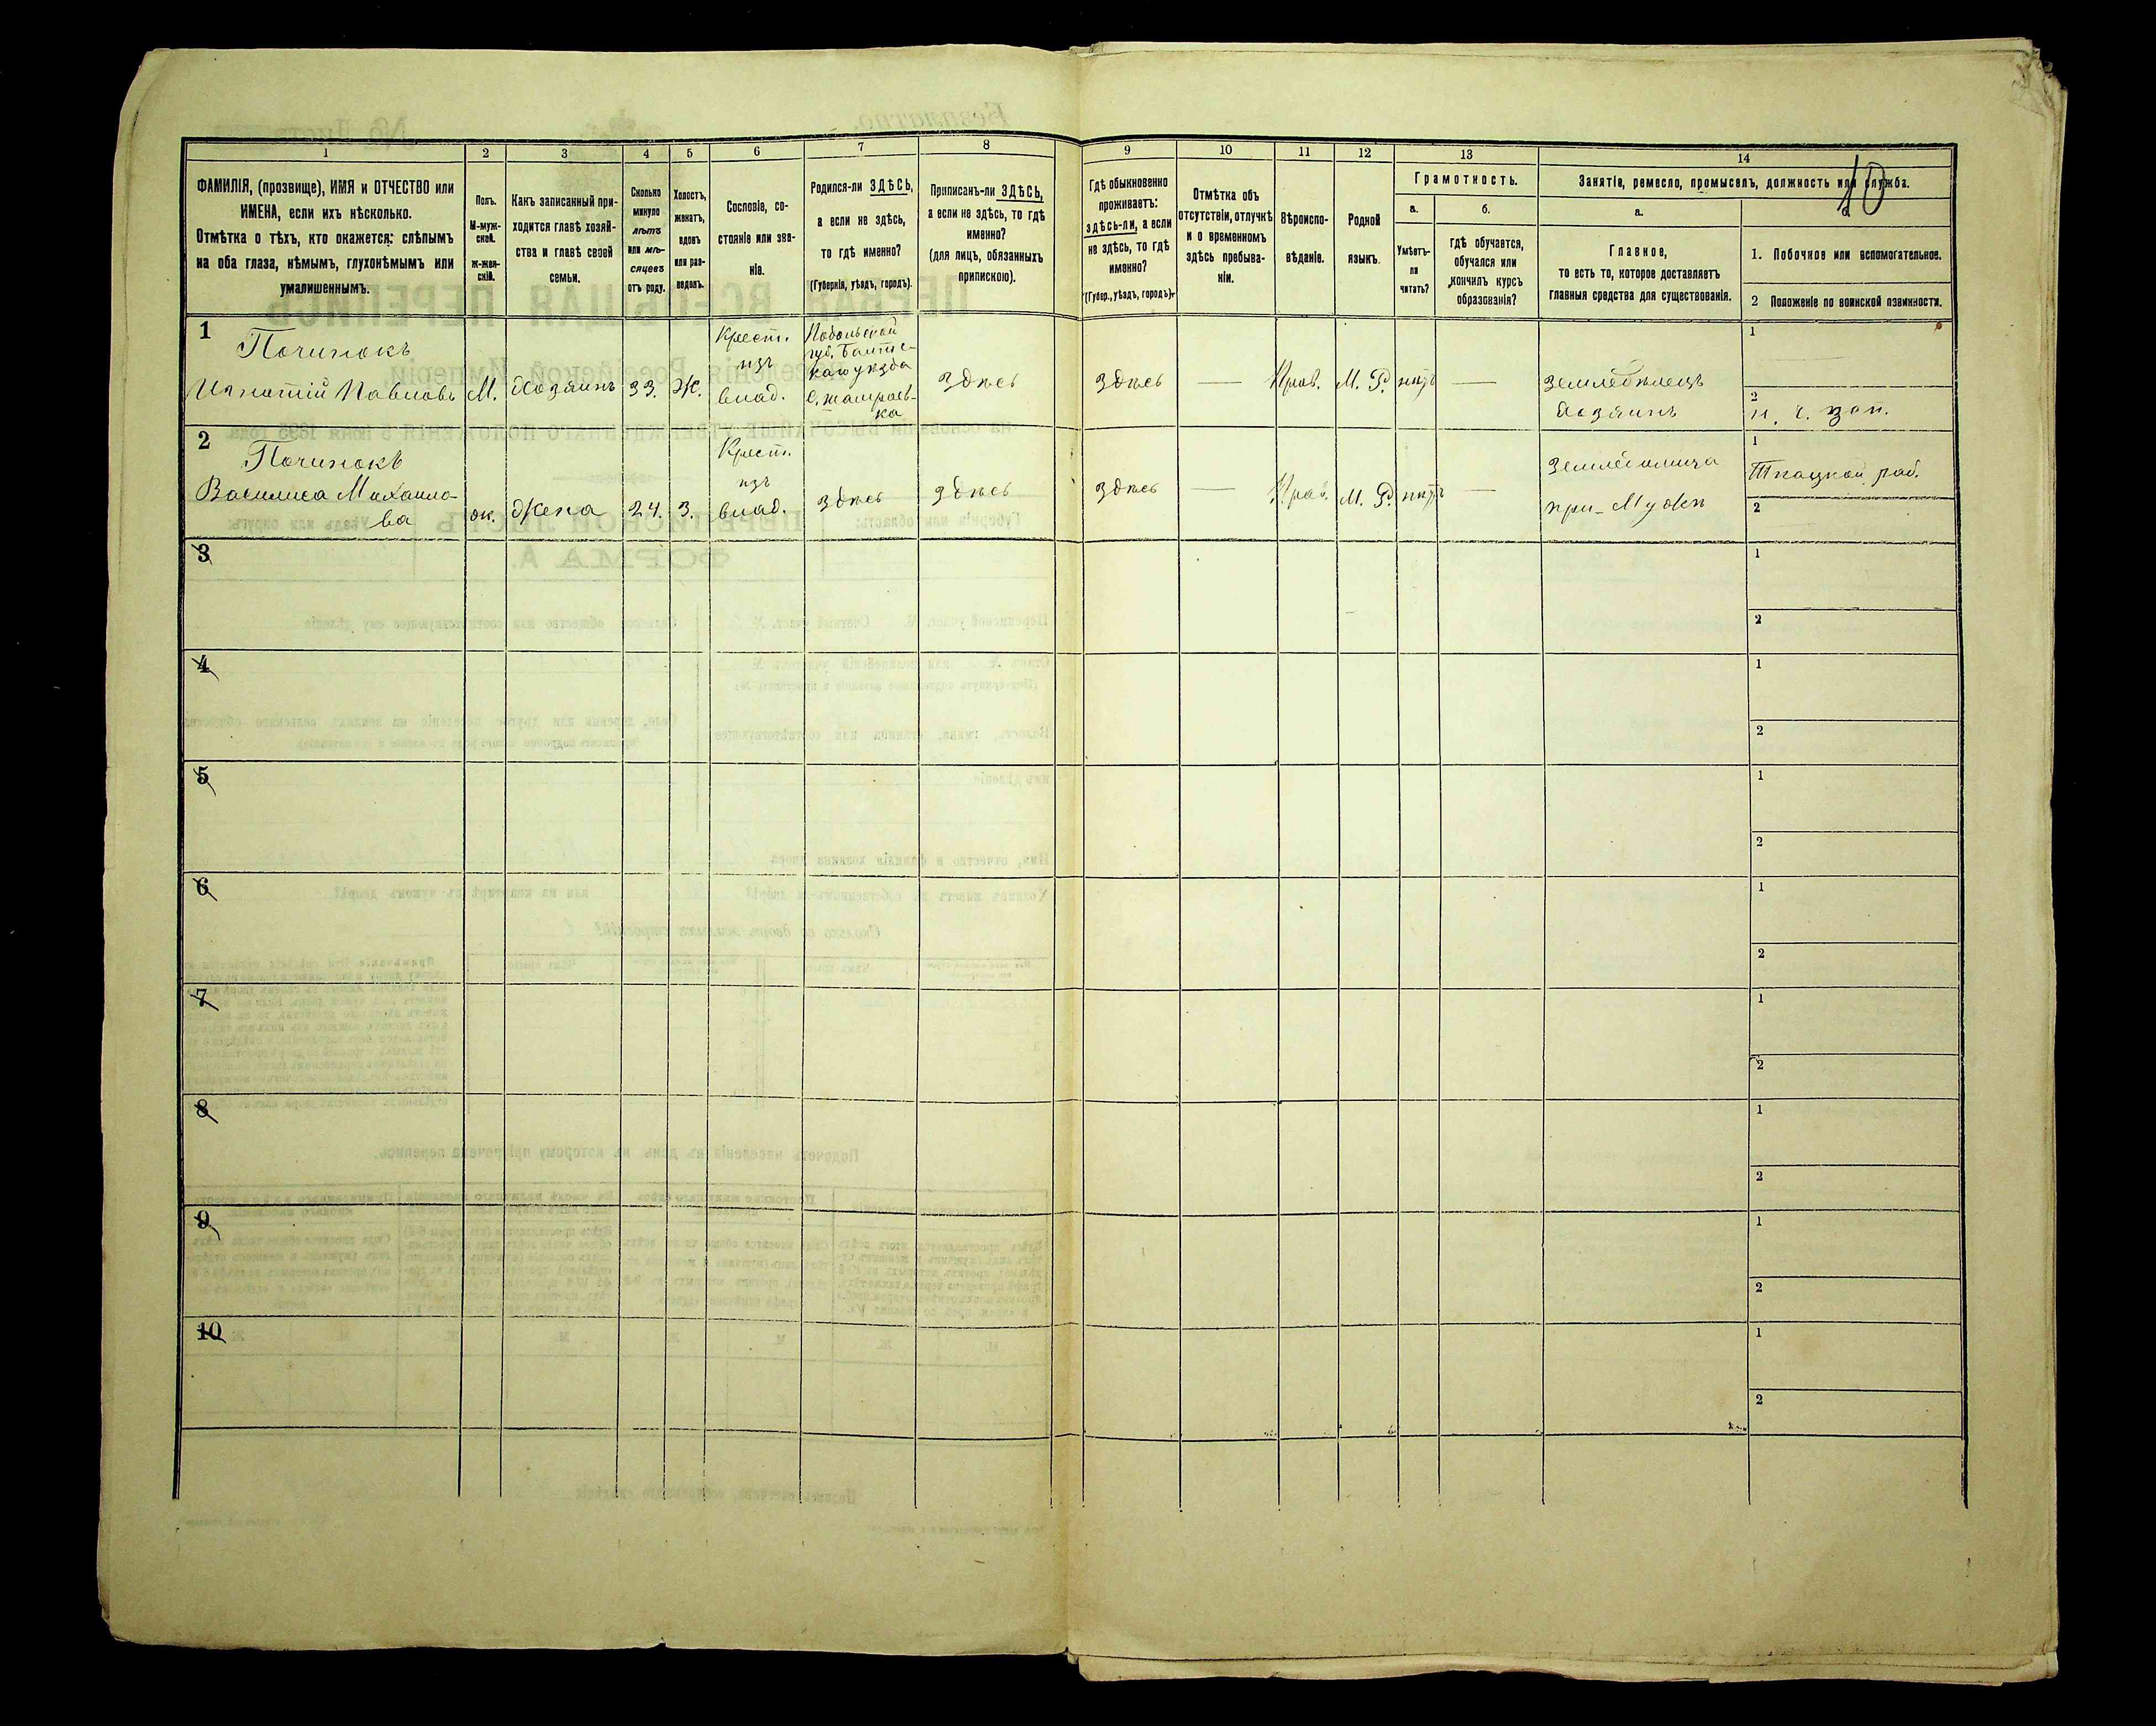 10
1 2 3 4 5 6 7 8 9 10 11 12 13 14
ФАМИЛІЯ, (прозвище), ИМЯ и ОТЧЕСТВО или
ИМЕНА, если ихъ нѣсколько.
Отмѣтка о тѣхъ, кто окажется: слѣпымъ
на оба глаза, нѣмымъ, глухонѣмымъ или
умалишеннымъ.
Полъ.
М-муж-
ской.
ж-жен-
скій.
Какъ записанный при-
ходится главѣ хозяй-
ства и главѣ своей
семьи.
Сколько
минуло
лѣтъ
или мѣ-
сяцевъ
отъ роду.
Холостъ,
женатъ,
вдовъ
или раз-
веденъ.
Сословіе, со-
стояніе или зва-
ніе.
Родился-ли ЗДѢСЬ,
а если не здѣсь,
то гдѣ именно?
(Губернія, уѣздъ, городъ).
Приписанъ-ли ЗДѢСЬ,
а если не здѣсь, то гдѣ
именно?
(для лицъ, обязанныхъ
припискою).
Гдѣ обыкновенно
проживаетъ:
здѣсь-ли, а если
не здѣсь, то гдѣ
именно?
(Губер., уѣздъ, городъ).
Отмѣтка объ
отсутствіи, отлучкѣ
и о временномъ
здѣсь пребыва-
ніи.
Вѣроиспо-
вѣданіе.
Родной
языкъ.
Грамотность.
а.
Умѣетъ-
ли
читать?
б.
гдѣ обучается,
обучался или
кончилъ курсъ
образованія?
Занятіе, ремесло, промыселъ, должность или служба.
а.
Главное,
то есть то, которое доставляетъ
главныя средства для существованія.
1. Побочное или вспомогательное.
2 Положеніе по воинской повинности.
1
Починокъ
Павловъ
М.
Хозяинъ
33.
Ж.
Крест.
изъ
влад.
Подольской
губ. Балтс-
каго уѣзда
здѣсь
здѣсь
—
Прав.
М. Р.
нѣтъ
—
земледѣлецъ
Хозяинъ
1
2
н. ч. зап.
2
Починокъ
Василиса Михаило-
ва
ж.
Жена
24.
З.
Крест.
изъ
влад.
здѣсь
здѣсь
здѣсь
—
Прав.
М. Р.
нѣтъ
—
при-Мужѣ
1
Ткацкой раб.
2
3
1
2
4
1
2
5
1
2
6
1
2
7
1
2
8
1
2
9
1
2
10
1
2